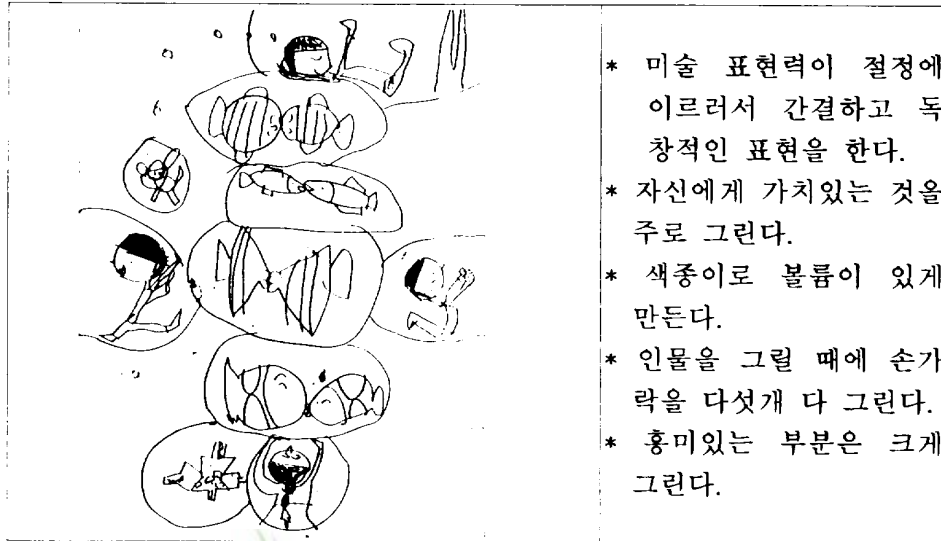 * 미술 표현력이 절정에
이르러서 간결하고 독
창적인 표현을 한다.
* 자신에게 가치있는 것을
주로 그린다.
* 색종이로 볼륨이 있게
만든다.
* 인물을 그릴 때에 손가
락을 다섯개 다 그린다.
* 흥미있는 부분은 크게
그린다.